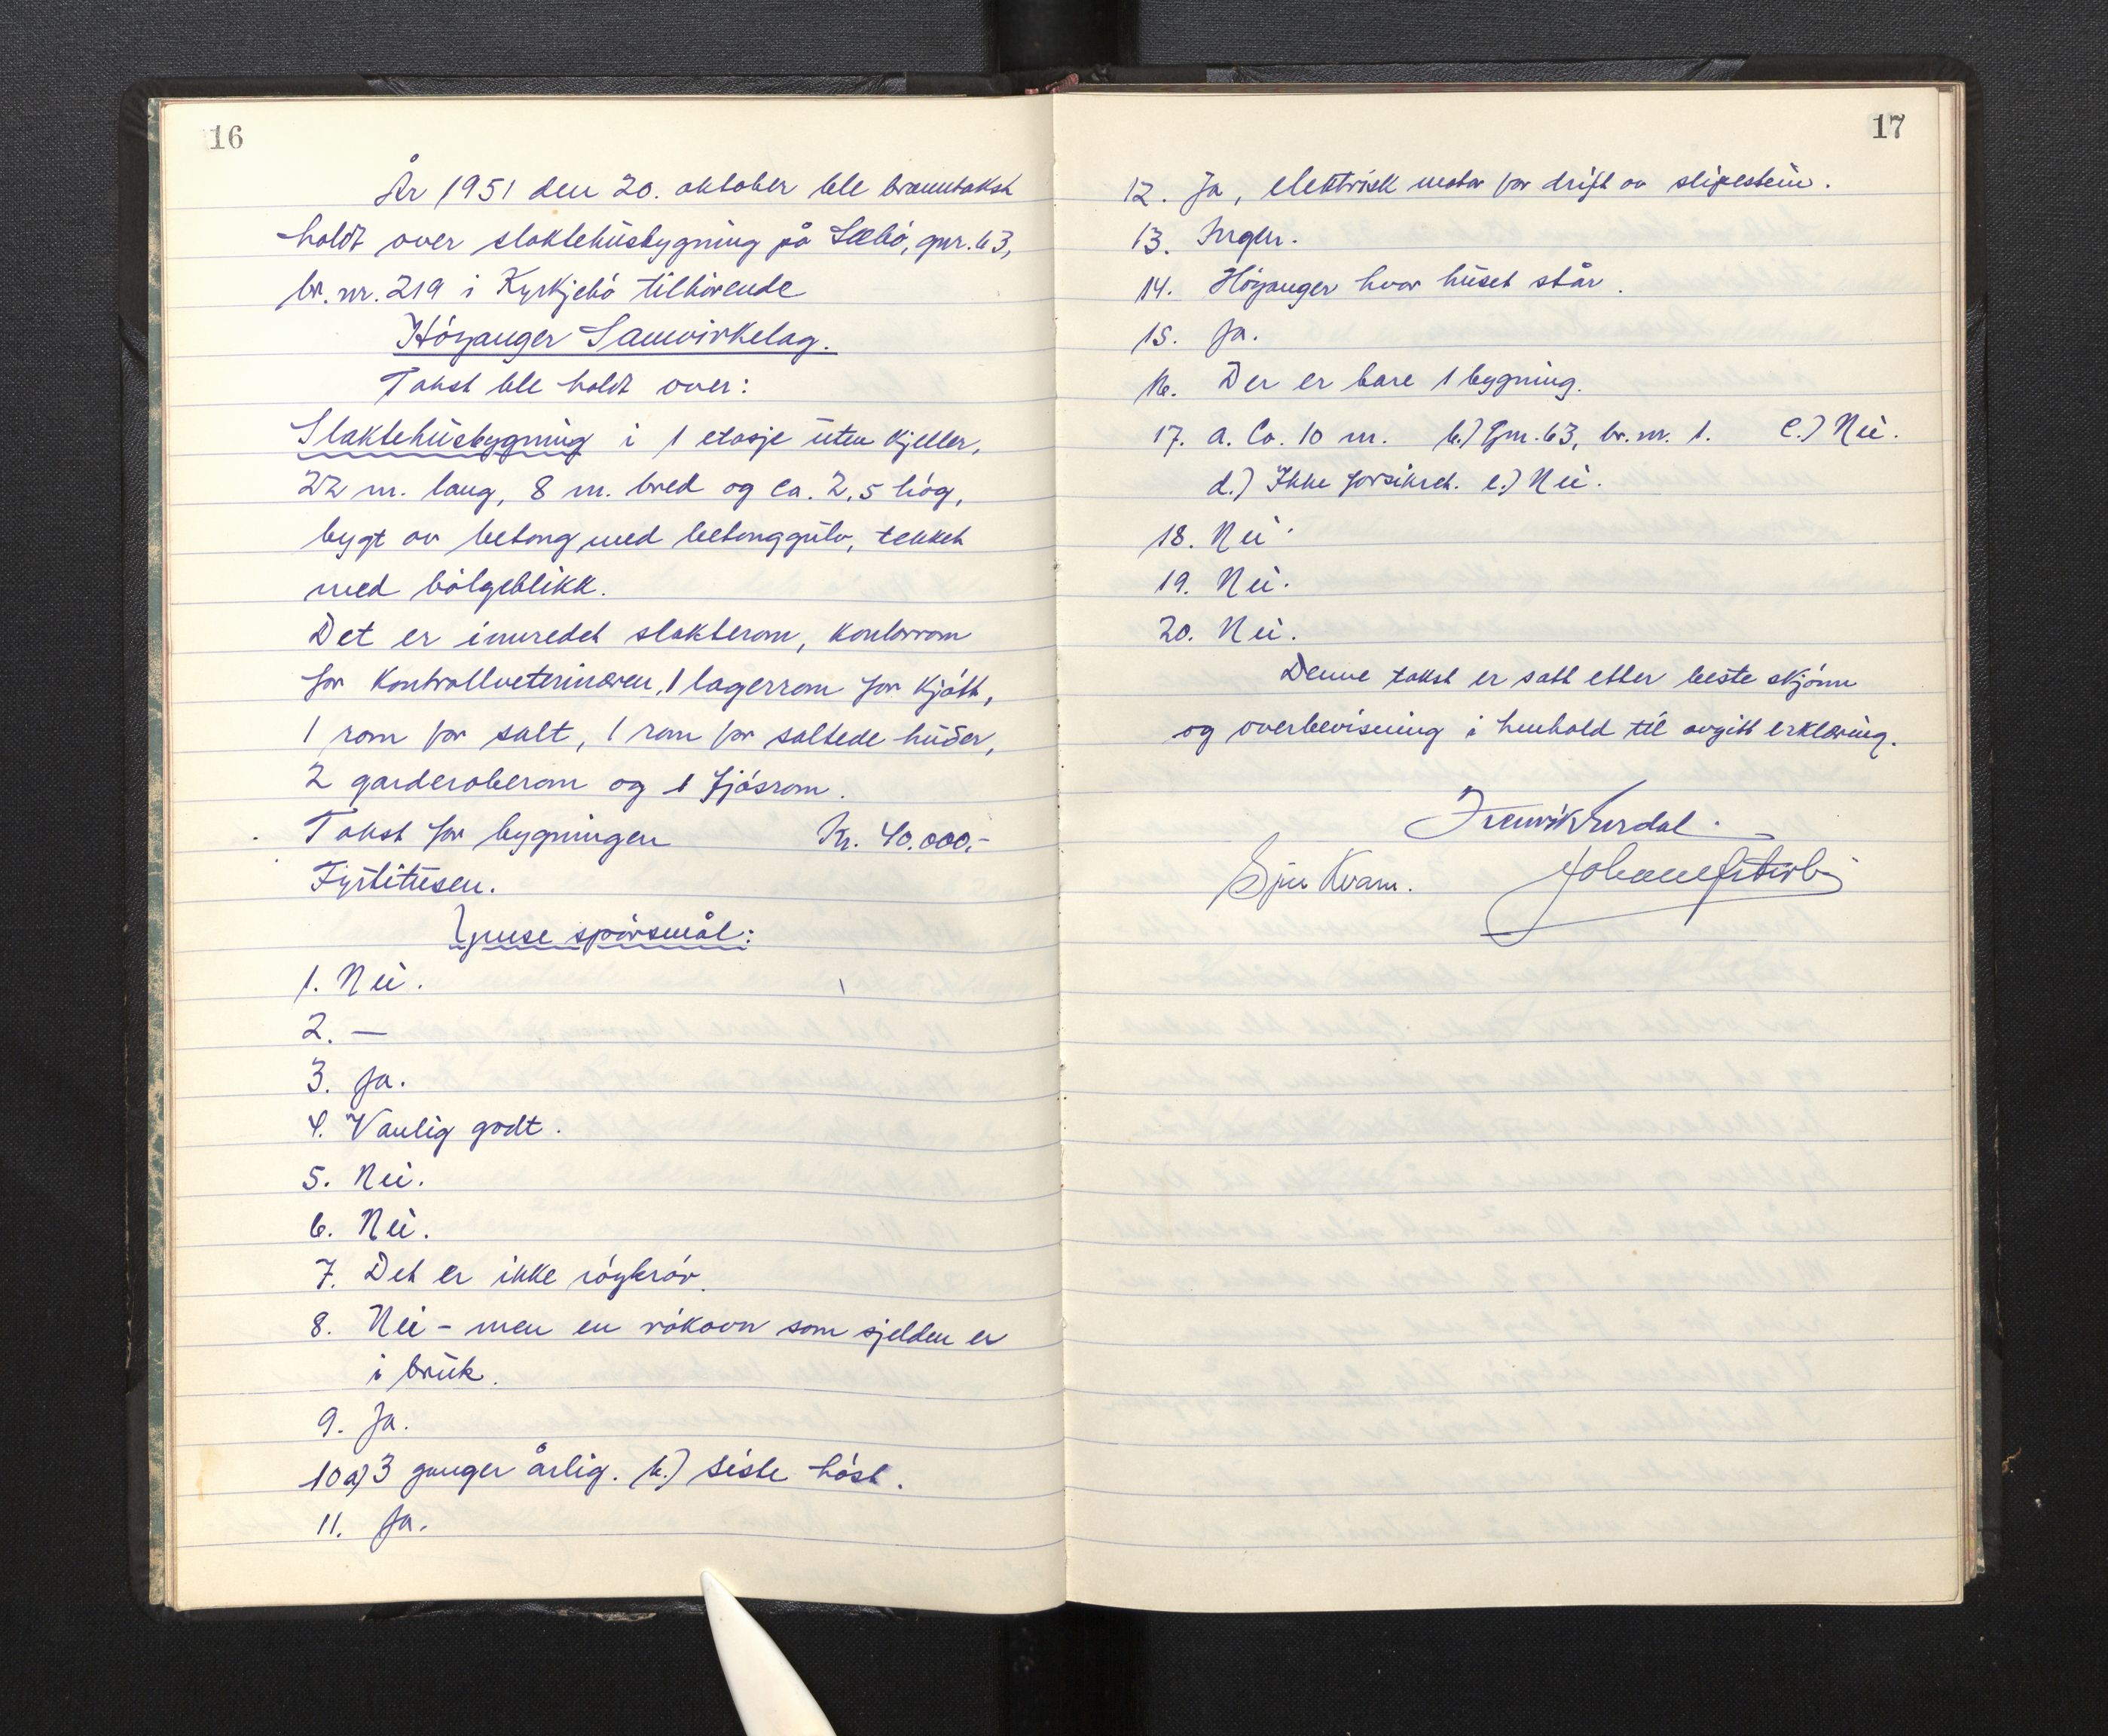 16
År 1951 den 20. oktober ble branntakst
holdt over slaktehusbygning på Sæbö, gnr. 63,
br. nr. 219 i Kyrkjebö tilhörende
Höyanger Samvirkelag.
Takst ble holdt over:
Slaktehusbygning i 1 etasje uten kjeller,
22 m. lang, 8 m. bred og ca. 2,5 hög,
bygt av betong med betonggulv, tekket
med bölgeblikk.
Det er innredet slakterom, kontorrom
for kontrollveterinæren, 1 lagerrom for kjött,
1 rom for salt, 1 rom for saltede huder,
2 garderoberom og 1 fjösrom.
Takst for bygningen Kr. 40.000.-
Fyrtitusen.
Ymse spörsmål:
1. Nei.
2. —
3. Ja.
4. Vanlig godt.
5. Nei.
6. Nei.
7. Det er ikke röykrör.
8. Nei - men en rökovn som sjelden er
i bruk.
9. Ja.
10 a) 3 ganger årlig. b.) siste höst.
11. Ja.
17
12. Ja, elektrisk motor for drift av slipestein.
13. Ingen.
14. Höyanger hvor huset står.
15. Ja.
16. Der er bare 1 bygning.
17. a. Ca. 10 m. b.) Gnr. 63, br. nr. 1. c.) Nei.
d.) Ikke forsikret. e.) Nei.
18. Nei.
19. Nei.
20. Nei.
Denne takst er satt etter beste skjönn
og overbevisning i henhold til avgitt erklæring.
Kvam.